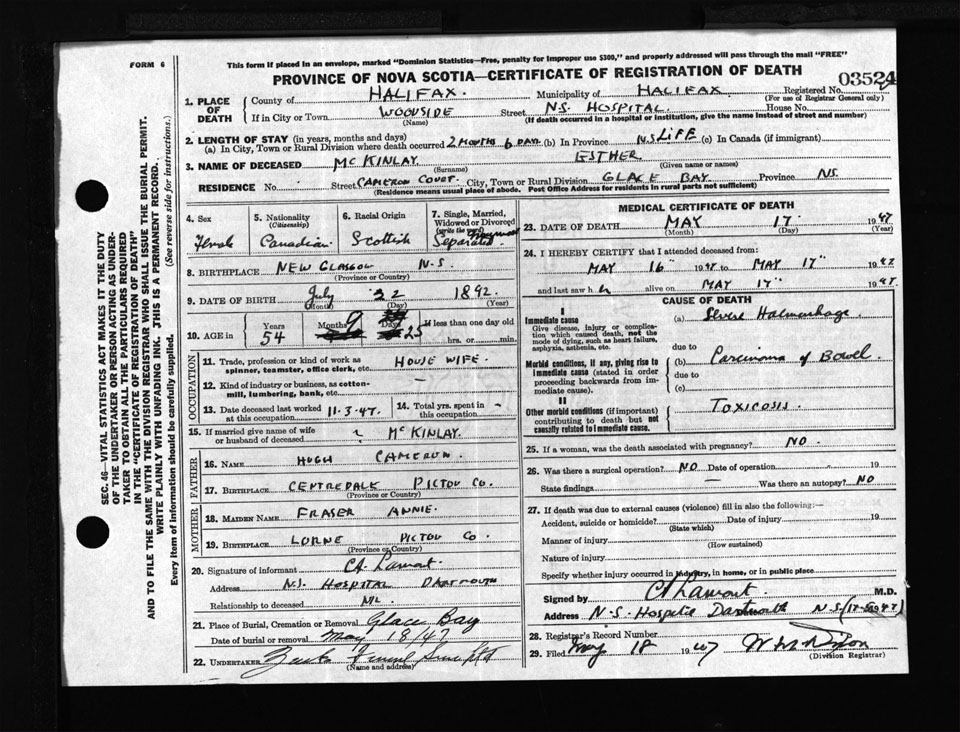 FORM 6
This form if placed in an envelope, marked "Dominion Statistics—Free, penalty for improper use $300," and properly addressed will pass through the mail "FREE"
PROVINCE OF NOVA SCOTIA—CERTIFICATE OF REGISTRATION OF DEATH
03524
SEC. 46—VITAL STATISTICS ACT MAKES IT THE DUTY
OF THE UNDERTAKER OR PERSON ACTING AS UNDER-
TAKER TO OBTAIN ALL THE PARTICULARS REQUIRED
IN THE "CERTIFICATE OF REGISTRATION OF DEATH"
AND TO FILE THE SAME WITH THE DIVISION REGISTRAR WHO SHALL ISSUE THE BURIAL PERMIT.
WRITE PLAINLY WITH UNFADING INK. THIS IS A PERMANENT RECORD.
Every item of information should be carefully supplied. (See reverse side for instructions.)
1. PLACE OF DEATH
County of HALIFAX. Municipality of HALIFAX Registered No.
(For use of Registrar General only)
If in City or Town WOODSIDE Street N.S. HOSPITAL. House No.
(Name) (If death occurred in a hospital or institution, give the name instead of street and number)
2. LENGTH OF STAY (in years, months and days)
(a) In City, Town or Rural Division where death occurred 2 MONTHS 6 DAYS (b) In Province N.S LIFE (c) In Canada (if immigrant)
3. NAME OF DECEASED MCKINLAY ESTHER
(Surname) (Given name or names)
RESIDENCE No. Street CAMERON COURT. City, Town or Rural Division GLACE BAY Province NS.
(Residence means usual place of abode. Post Office Address for residents in rural parts not sufficient)
4. Sex Female
5. Nationality (Citizenship) Canadian
6. Racial Origin Scottish
7. Single, Married, Widowed or Divorced (write the word) Separated
8. BIRTHPLACE NEW GLASGOW N.S.
(Province or Country)
9. DATE OF BIRTH July 22 1892
(Month) (Day) (Year)
10. AGE in Years 54 Months 9 Days 25 If less than one day old hrs. or min.
OCCUPATION
11. Trade, profession or kind of work as spinner, teamster, office clerk, etc. HOUSE WIFE.
12. Kind of industry or business, as cotton-mill, lumbering, bank, etc. —
13. Date deceased last worked at this occupation 11.3.47. 14. Total yrs. spent in this occupation -
15. If married give name of wife or husband of deceased MCKINLAY.
FATHER
16. NAME HUGH CAMERON
17. BIRTHPLACE CENTREDALE PICTOU CO.
(Province or Country)
MOTHER
18. MAIDEN NAME FRASER ANNIE.
19. BIRTHPLACE LORNE PICTOU CO.
(Province or Country)
20. Signature of informant CA Lamont.
Address N.S. HOSPITAL DARTMOUTH
Relationship to deceased NIL
21. Place of Burial, Cremation or Removal Glace Bay
Date of burial or removal May 18/47
22. UNDERTAKER Funeral
(Name and address)
MEDICAL CERTIFICATE OF DEATH
23. DATE OF DEATH MAY 17 1947
(Month) (Day) (Year)
24. I HEREBY CERTIFY that I attended deceased from:
MAY 16" 1947 to MAY 17" 1947
and last saw her alive on MAY 17" 1947.
CAUSE OF DEATH
I
Immediate cause (a) Severe Haemorrhage
Give disease, injury or complication which caused death, not the mode of dying, such as heart failure, asphyxia, asthenia, etc.
due to
Morbid conditions, if any, giving rise to immediate cause (stated in order proceeding backwards from immediate cause). (b) Carcinoma of Bowel.
due to
(c)
II
Other morbid conditions (if important) contributing to death but not causally related to immediate cause. TOXICOSIS.
25. If a woman, was the death associated with pregnancy? NO.
26. Was there a surgical operation? NO Date of operation 19
State findings — Was there an autopsy? NO
27. If death was due to external causes (violence) fill in also the following:—
Accident, suicide or homicide? Date of injury 19
(State which)
Manner of injury
(How sustained)
Nature of injury
Specify whether injury occurred in industry, in home, or in public place
Signed by CA Lamont. M.D.
Address N.S. Hospital Dartmouth N.S
28. Registrar's Record Number
29. Filed May 18 1947
(Division Registrar)